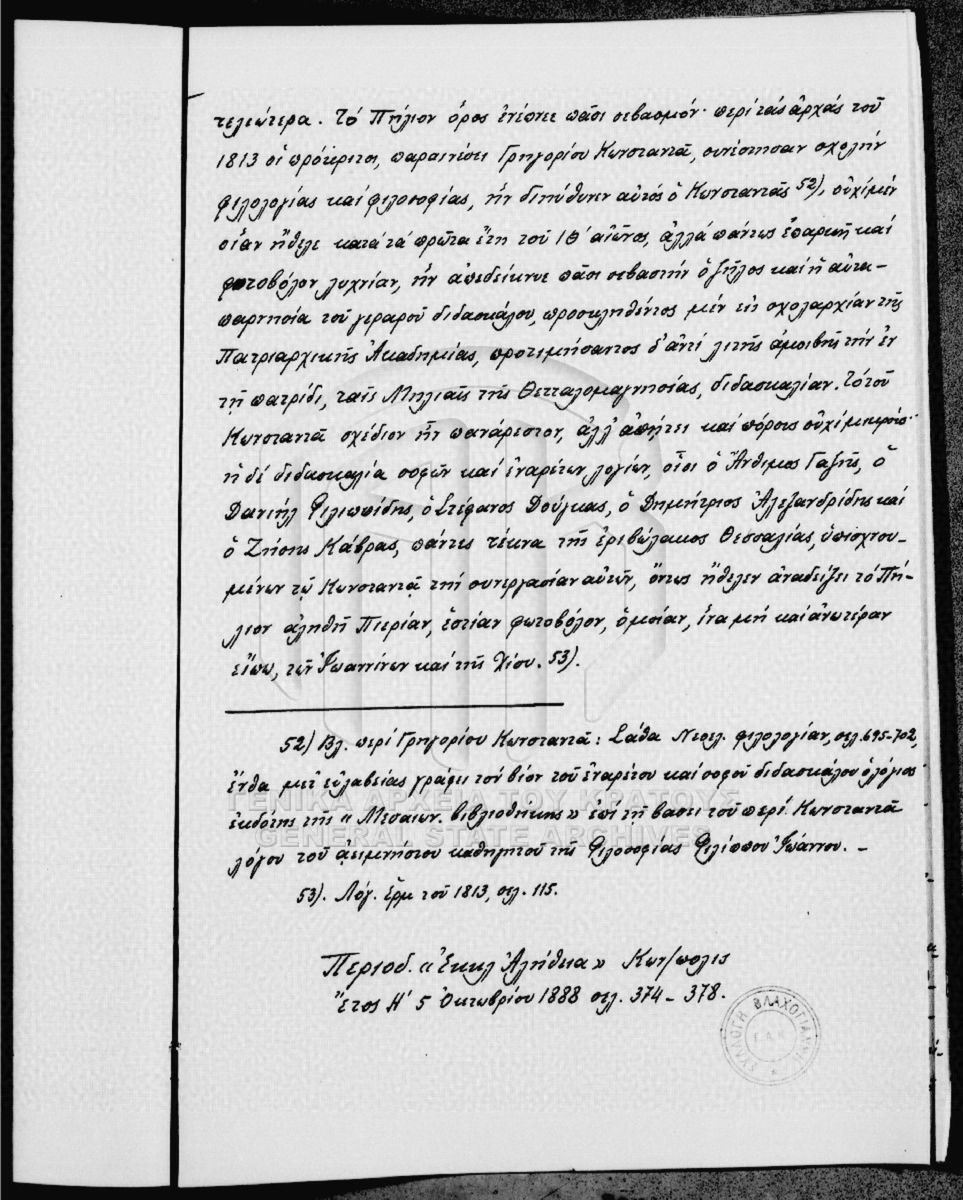 τελειώτερα. Τό Πήλιον ὄρος ἐνέπνεε πᾶσι σεβασμόν· περί τάς ἀρχάς τοῦ
1813 οἱ πρόκριτοι, παραινέσει Γρηγορίου Κωνσταντᾶ, συνέστησαν σχολήν
φιλολογίας καί φιλοσοφίας, ἥν διηύθυνεν αὐτός ὁ Κωνσταντᾶς 52), οὐχί μέν
οἵαν ἤθελε κατά τά πρῶτα ἔτη τοῦ ΙΘ΄ αἰῶνος, ἀλλά πάντως ἐπαρκῆ καί
φωτοβόλον λυχνίαν, ἥν ἀπεδείκνυε πᾶσι σεβαστήν ὁ ζῆλος καί ἡ αὐτα-
παρνησία τοῦ γεραροῦ διδασκάλου, προσκληθέντος μέν εἰς σχολαρχίαν τῆς
Πατριαρχικῆς Ἀκαδημίας, προτιμήσαντος δ' ἀντί λιτῆς ἀμοιβῆς τήν ἐν
τῇ πατρίδι, ταῖς Μηλιαῖς τῆς Θετταλομαγνησίας, διδασκαλίαν. Τό τοῦ
Κωνσταντᾶ σχέδιον ἦν πανάρεστον, ἀλλ' ἀπῄτει καί πόρους οὐχί μικρούς·
ἡ δέ διδασκαλία σοφῶν καί ἐναρέτων λογίων, οἷοι ὁ Ἄνθιμος Γαζῆς, ὁ
Δανιήλ Φιλιππίδης, ὁ Στέφανος Δούγκας, ὁ Δημήτριος Ἀλεξανδρίδης καί
ὁ Ζήσης Κάβρας, πάντες τέκνα τῆς ἐριβώλακος Θεσσαλίας, ὑπισχνου-
μένων τῷ Κωνσταντᾷ τήν συνεργασίαν αὐτῶν, ὄντως ἤθελεν ἀναδείξει τό Πή-
λιον ἀληθῆ Πιερίαν, ἑστίαν φωτοβόλον, ὁμοίαν, ἵνα μή καί ἀνωτέραν
εἴπω, τῶν Ἰωαννίνων καί τῆς Χίου. 53).
52) Βλ. περί Γρηγορίου Κωνσταντᾶ: Σάθα Νεοελ. φιλολογίαν, σελ. 695-702,
ἔνθα μετ' εὐλαβείας γράφει τόν βίον τοῦ ἐναρέτου καί σοφοῦ διδασκάλου ὁ λόγιος
ἐκδότης τῆς «Μεσαιων. βιβλιοθήκης» ἐπί τῇ βάσει τοῦ περί Κωνσταντᾶ
λόγου τοῦ ἀειμνήστου καθηγητοῦ τῆς Φιλοσοφίας Φιλίππου Ἰωάννου. -
53). Λόγ. Ἑρμ τοῦ 1813, σελ. 115.
Περιοδ. «Ἐκκλ Ἀλήθεια» Κων/πολις
Ἔτος Η΄ 5 Ὀκτωβρίου 1888 σελ. 374-378.
ΓΕΝΙΚΑ ΑΡΧΕΙΑ ΤΟΥ ΚΡΑΤΟΥΣ
GENERAL STATE ARCHIVES
ΣΥΛΛΟΓΗ ΒΛΑΧΟΓΙΑΝΝΗ
Γ.Α.Κ.